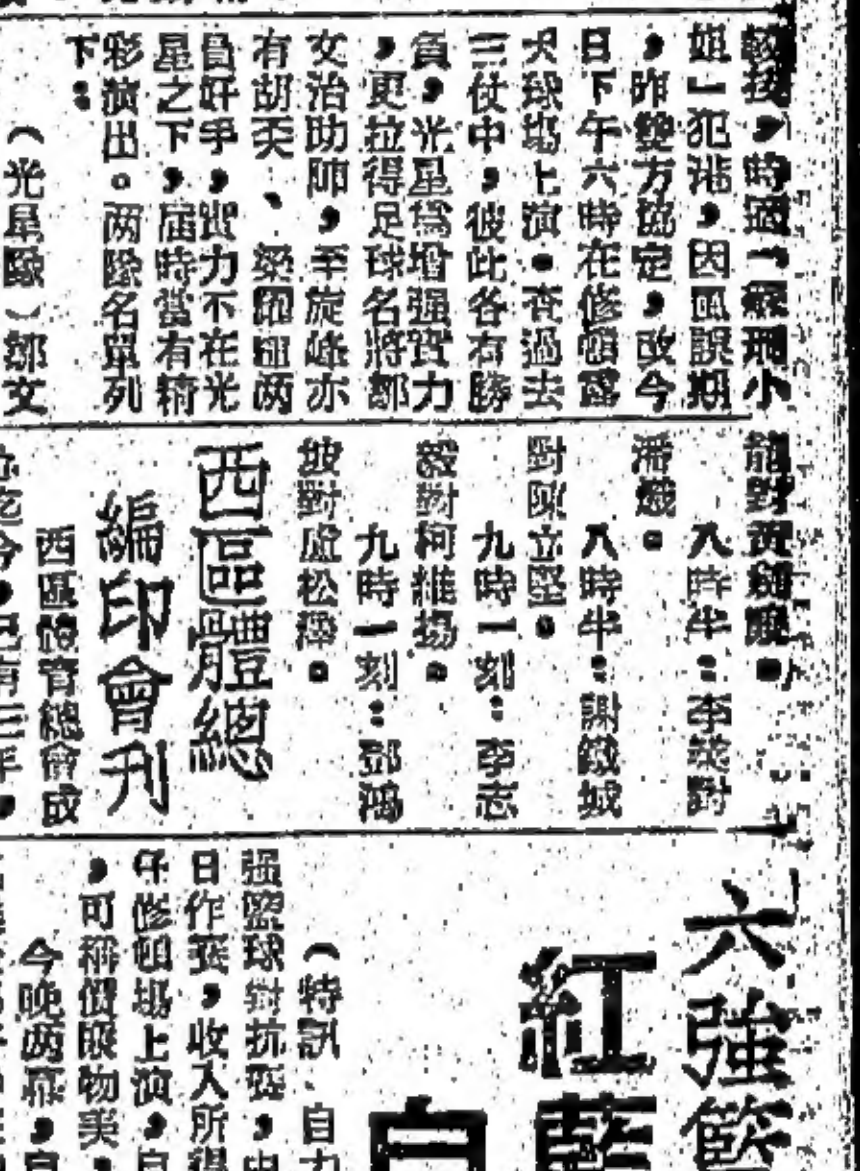 較技，時適一颶風小
姐」犯港，因而誤期
，昨雙方協定，改今
日下午六時在修頓露
天球場上演。查過去
三仗中，彼此各有勝
負，光星爲增强實力
，更拉得足球名將鄒
文治助陣，至旋峰亦
有胡 、梁 两
員好手，實力不在光
星之下，屆時當有精
彩演出。两隊名單列
下：
（光星隊）鄒文
龍對黃
八時半：李 對
潘熾。
八時半：謝 城
對陳立堅。
九時一刻：李志
毅對柯維揚。
九時一刻：鄧鴻
坡對盧松 。
西區體總
編印會刊
西區體育總會成
立迄今，已有三年，
六強籃
紅藍
自
（特訊）自力
强籃球對抗賽，
日作賽，收入所得
在修頓場上演，自
，可稱價廉物美，
今晚两幕，自